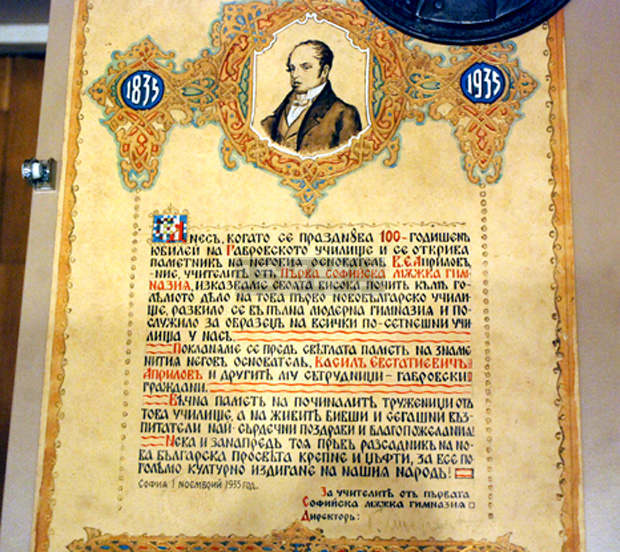 1835
1935
Днесъ, когато се празднува 100-годишенъ
юбилей на Габровското училище и се открива
паметникъ на неговия основатель В.Е.Априловъ,
-ние, учителитѣ отъ Първа софийска мѫжка гим-
назия, изказваме своята висока почить къмъ го-
лѣмото дѣло на това първо новобългарско учили-
ще, развило се въ пълна модерна гимназия и по-
служило за образецъ на всички по-сетнешни учи-
лища у насъ.
Покланяме се предъ свѣтлата паметь на знаме
нития неговъ основатель, Василъ Евстатиевичъ
Априловъ и другитѣ му сътрудници - габровски
граждани.
Вѣчна паметь на починалитѣ труженици отъ
това училище, а на живитѣ бивши и сегашни въз-
питатели най-сърдечни поздрави и благопожелания!
Нека и занапредь тоя пръвъ разсадникъ на но-
ва българска просвѣта крепне и цъфти, за все по
голѣмо културно издигане на нашия народъ!
София 1 ноемврий 1935 год.
За учителитѣ отъ първата
Софийска мѫжка гимназия
Директоръ: